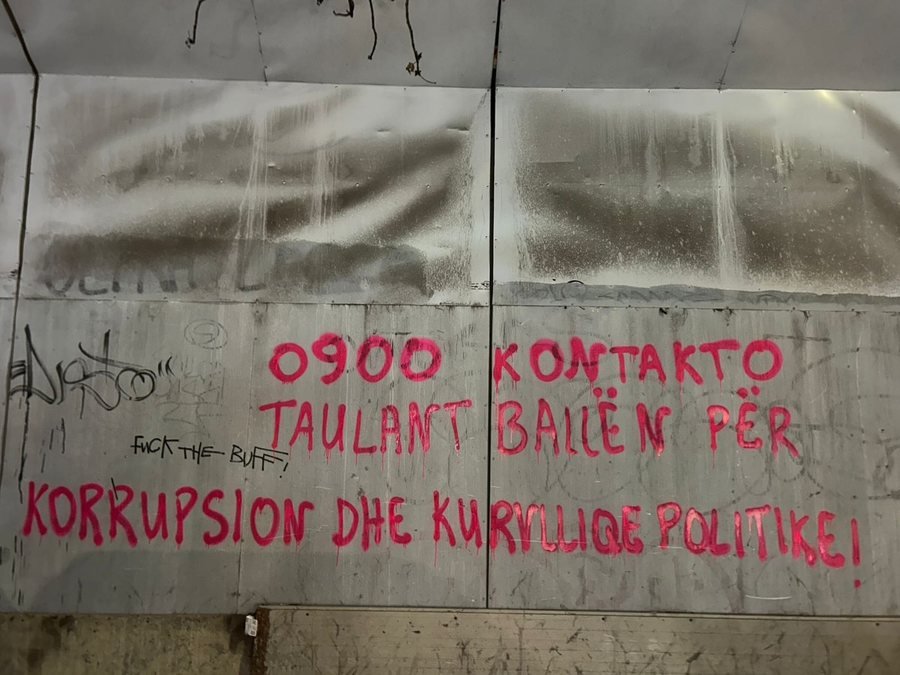 0900 KONTAKTO
TAULANT BALLËN PËR
FUCK THE BUFF!
KORRUPSION DHE KURVLLIQE POLITIKE!